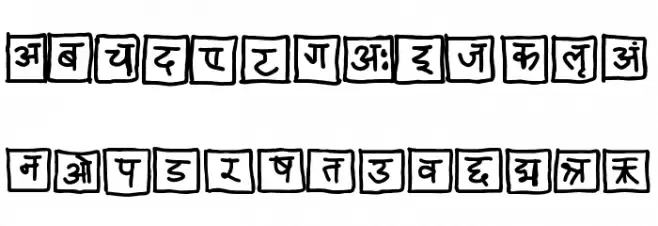 अ ब च द ए ट ग अः इ ज क लृ अं
न ओ प ड र ष त उ व द्द द्म श्र